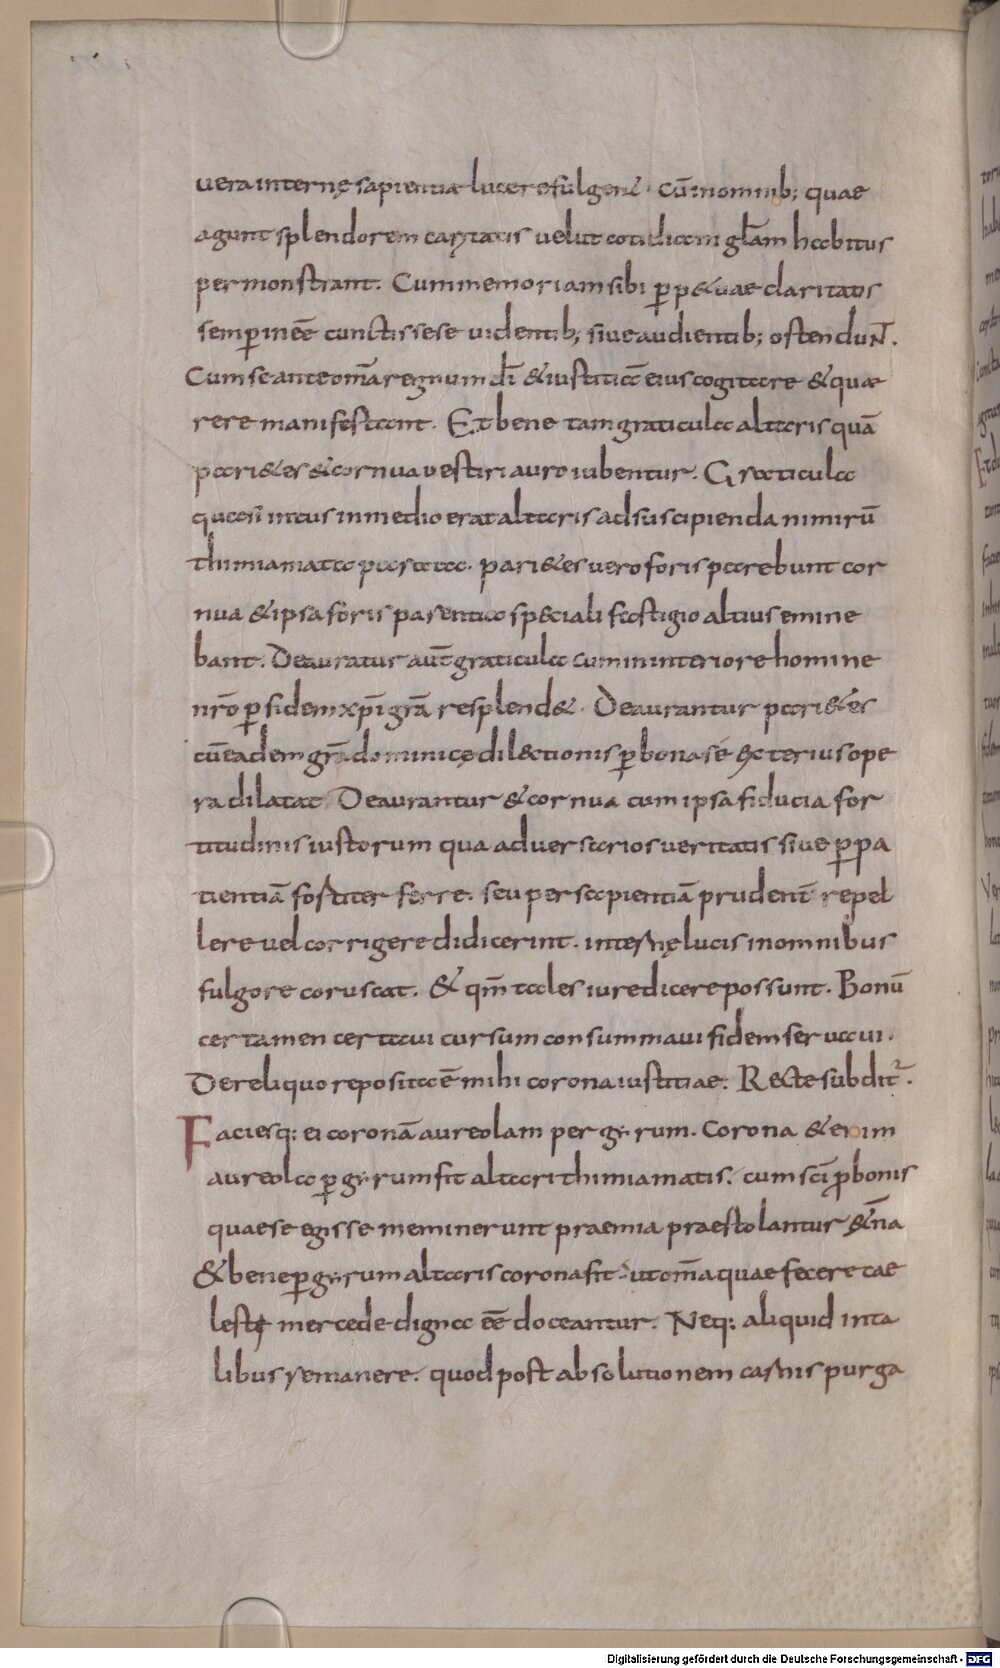 uera internę sapientiae luce refulgent. Cū in omnib; quae
agunt splendorem caritatis uelut cotidiani gl̄am habitus
permonstrant. Cum memoriam sibi ꝑpetuae claritatis
semꝑ ineē cunctis sese uidentib; siue audientib; ostenduNT.
Cum se ante om̄a regnum dī & iustitiā eius cogitare & quae
rere manifestant. Et bene tam graticula altaris quā
pari&es & cornua uestiri auro iubentur. Graticula
quasi intus in medio erat altaris ad suscipienda nimirū
thimiamata parata. pari&es uero foris parebunt cor
nua & ipsa foris parentia speciali fastigio altius emine
bant. Deauratur aut̄ graticula cum in interiore homine
nr̄o ꝑ fidem xp̄i gr̄a resplend&. Deaurantur pari&es
cū eadem gr̄a dominicę dilectionis ꝑ bona se exterius ope
ra dilatat. Deaurantur & cornua cum ipsa fiducia for
titudinis iustorum qua aduersarios ueritatis siue ꝑ pa
tientiā fortiter ferre. seu per sapientiā prudent̄ repel
lere uel corrigere didicerint. internę lucis in omnibus
fulgore coruscat. & qm̄ tales iure dicere possunt. Bonū
certamen certaui cursum consummaui fidem seruaui.
De reliquo reposita ē mihi corona iustitiae. Recte subdit᷑.
Faciesq: ei coronā aureolam per gyrum. Corona &enim
aureola ꝑ gyrum fit altari thimiamatis. cum sc̄i ꝓ bonis
quae se egisse meminerunt praemia praestolantur &̄na
& bene ꝑ gyrum altaris corona fit. ut om̄a quae fecere cae
lestę mercede digna eē doceantur. Neq: aliquid in ta
libus remanere. quod post absolutionem carnis purga